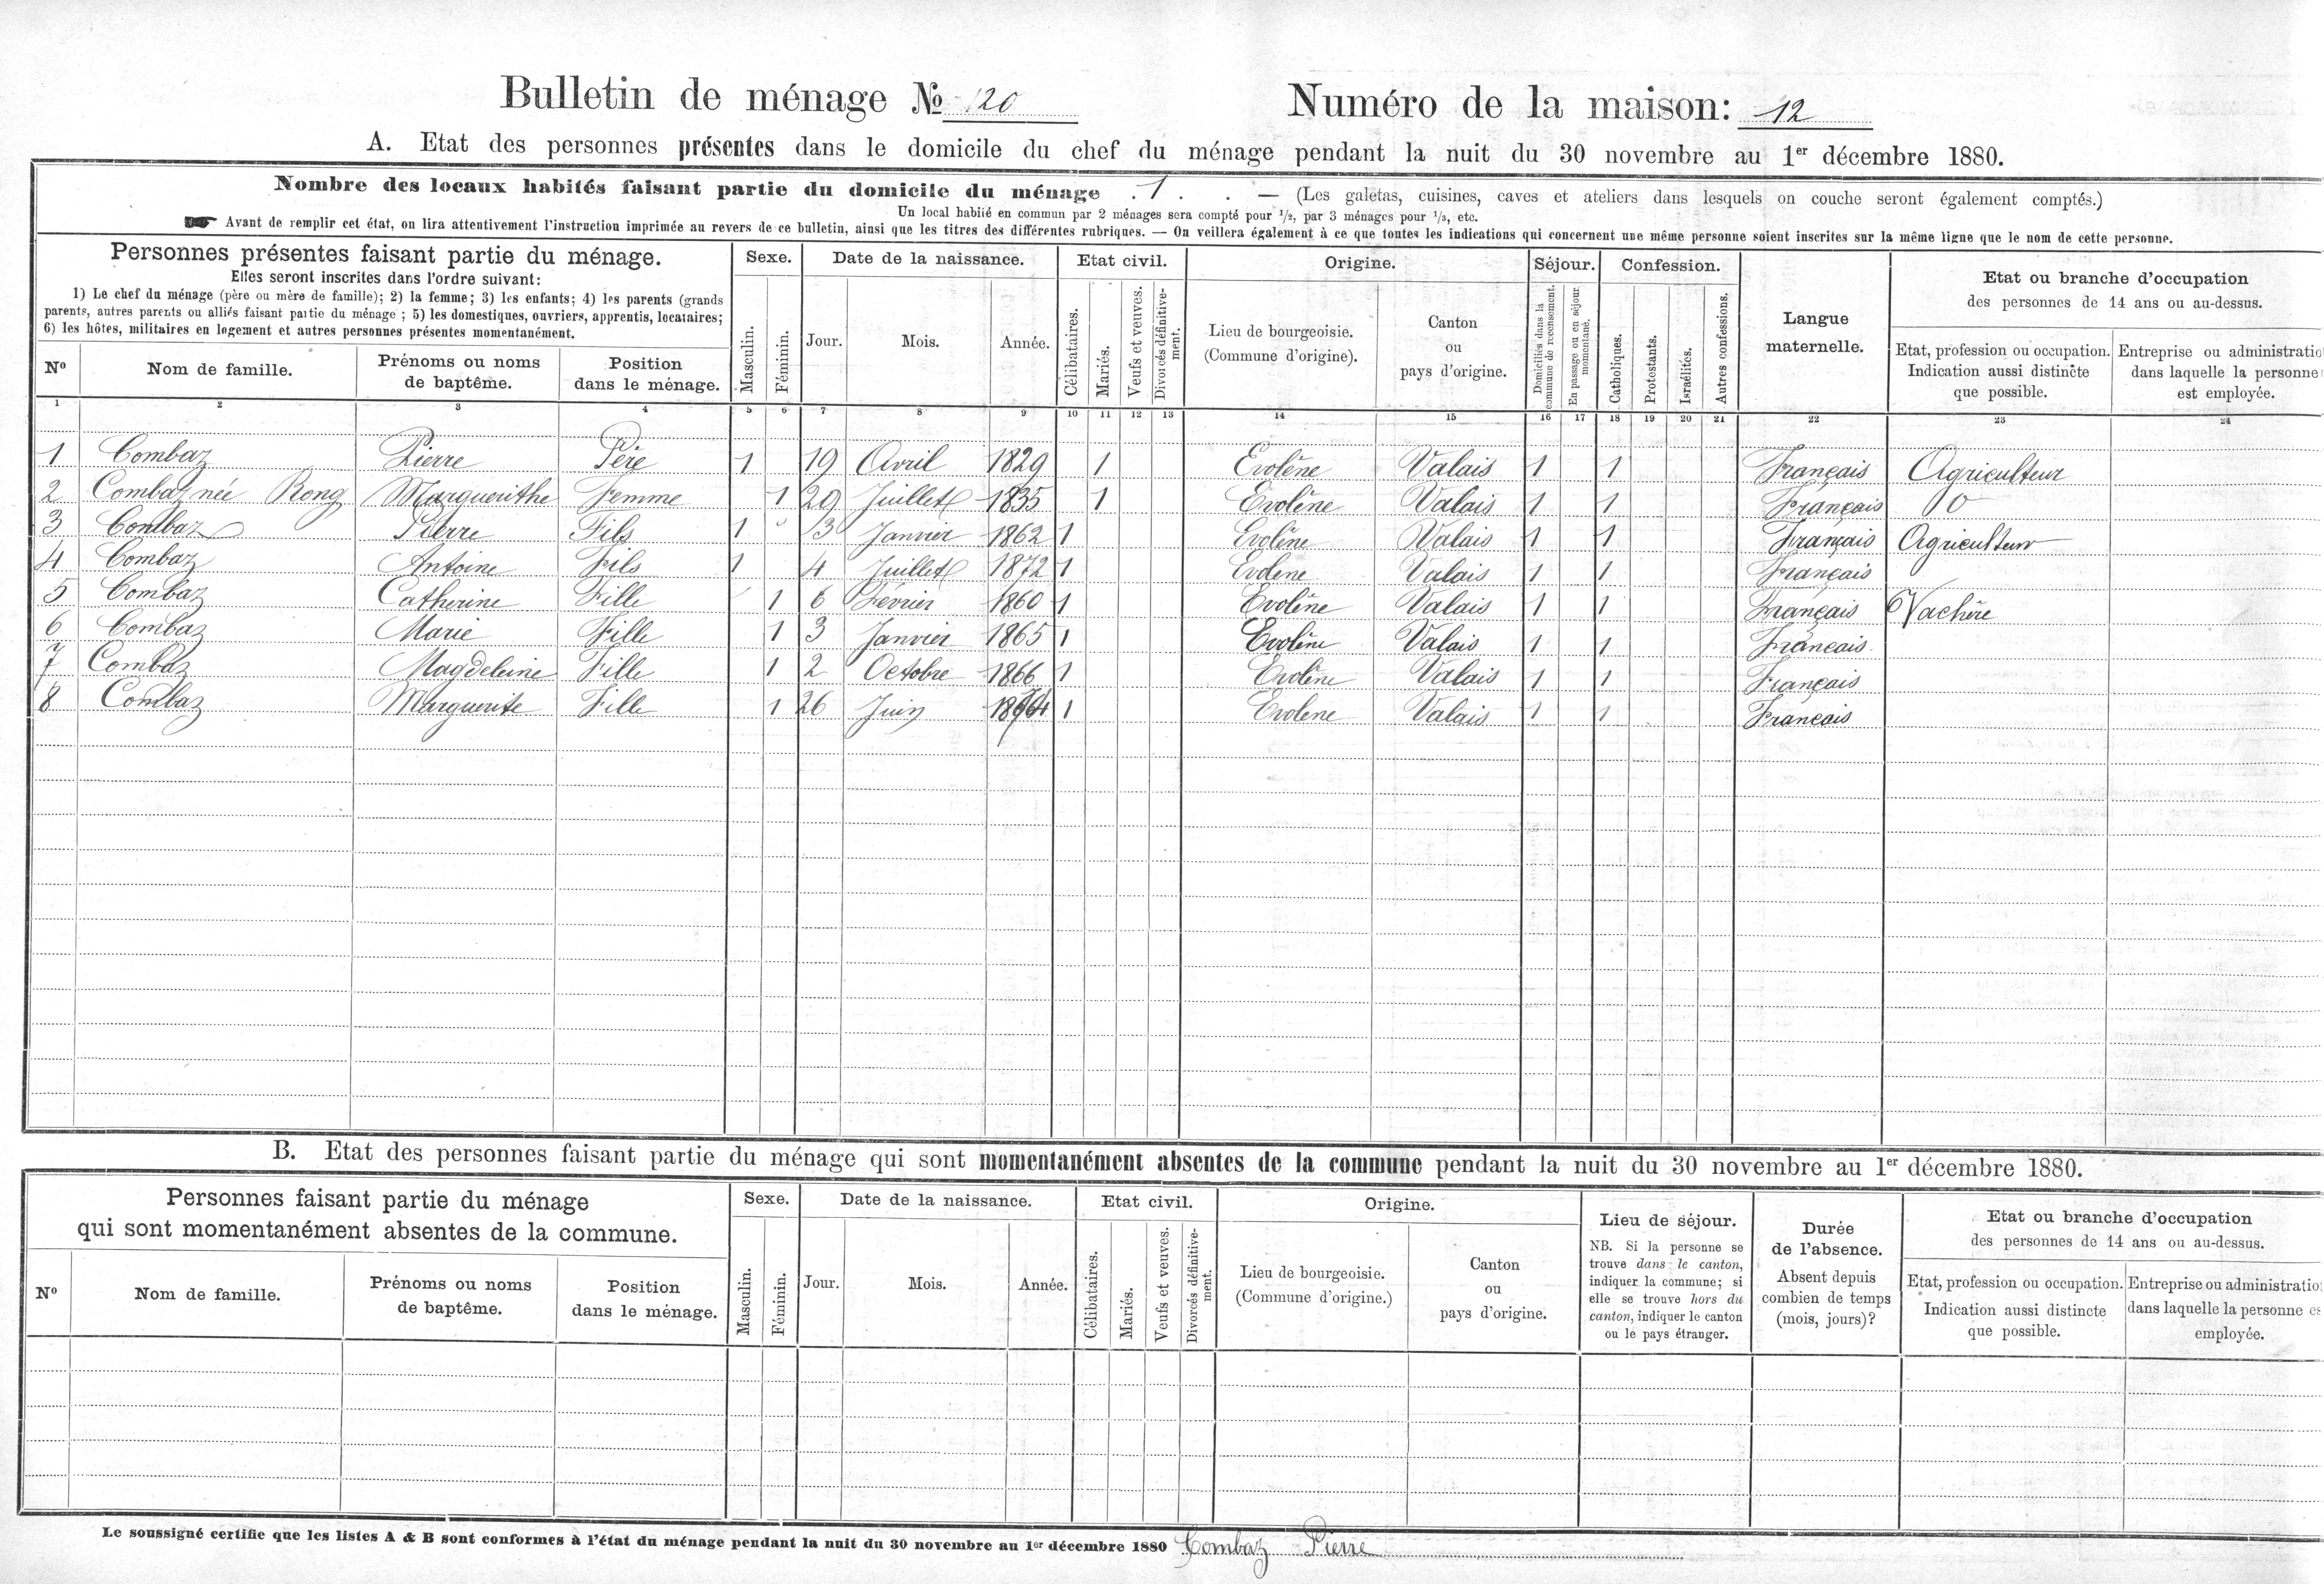 Bulletin de ménage № 120 Numéro de la maison: 12
A. Etat des personnes présentes dans le domicile du chef du ménage pendant la nuit du 30 novembre au 1er décembre 1880.
Nombre des locaux habités faisant partie du domicile du ménage . 1 . . — (Les galetas, cuisines, caves et ateliers dans lesquels on couche seront également comptés.)
Un local habité en commun par 2 ménages sera compté pour 1/2, par 3 ménages pour 1/3, etc.
Avant de remplir cet état, on lira attentivement l'instruction imprimée au revers de ce bulletin, ainsi que les titres des différentes rubriques. — On veillera également à ce que toutes les indications qui concernent une même personne soient inscrites sur la même ligne que le nom de cette personne.
Personnes présentes faisant partie du ménage.
Elles seront inscrites dans l'ordre suivant:
1) Le chef du ménage (père ou mère de famille); 2) la femme; 3) les enfants; 4) les parents (grands
parents, autres parents ou alliés faisant partie du ménage ; 5) les domestiques, ouvriers, apprentis, locataires;
6) les hôtes, militaires en logement et autres personnes présentes momentanément.
Nº
Nom de famille.
Prénoms ou noms
de baptême.
Position
dans le ménage.
Sexe.
Masculin.
Féminin.
Date de la naissance.
Jour.
Mois.
Année.
Etat civil.
Célibataires.
Mariés.
Veufs et veuves.
Divorcés définitive-
ment.
Origine.
Lieu de bourgeoisie.
(Commune d'origine).
Canton
ou
pays d'origine.
Séjour.
Domiciliés dans la
commune de recensement.
En passage ou en séjour
momentané.
Confession.
Catholiques.
Protestants.
Israélites.
Autres confessions.
Langue
maternelle.
Etat ou branche d'occupation
des personnes de 14 ans ou au-dessus.
Etat, profession ou occupation.
Indication aussi distincte
que possible.
Entreprise ou administratio
dans laquelle la personne
est employée.
1 2 3 4 5 6 7 8 9 10 11 12 13 14 15 16 17 18 19 20 21 22 23 24
1 Combaz Pierre Père 1 19 Avril 1829 1 Evolêne Valais 1 1 Français Agriculteur
2 Combaz née Rong Marguerithe Femme 1 29 Juillet 1835 1 Evolêne Valais 1 1 Français 0
3 Combaz Pierre Fils 1 3 Janvier 1862 1 Evolêne Valais 1 1 Français Agriculteur
4 Combaz Antoine Fils 1 4 Juillet 1872 1 Evolene Valais 1 1 Français
5 Combaz Catherine Fille 1 6 Fevrier 1860 1 Evolêne Valais 1 1 Français Vachère
6 Combaz Marie Fille 1 3 Janvier 1865 1 Evolêne Valais 1 1 Francais
7 Combaz Magdeleine Fille 1 2 Octobre 1866 1 Evolêne Valais 1 1 Français
8 Combaz Marguerite Fille 1 26 Juin 1 Evolene Valais 1 1 Français
B. Etat des personnes faisant partie du ménage qui sont momentanément absentes de la commune pendant la nuit du 30 novembre au 1er décembre 1880.
Personnes faisant partie du ménage
qui sont momentanément absentes de la commune.
Nº
Nom de famille.
Prénoms ou noms
de baptême.
Position
dans le ménage.
Sexe.
Masculin.
Féminin.
Date de la naissance.
Jour.
Mois.
Année.
Etat civil.
Célibataires.
Mariés.
Veufs et veuves.
Divorcés définitive-
ment.
Origine.
Lieu de bourgeoisie.
(Commune d'origine.)
Canton
ou
pays d'origine.
Lieu de séjour.
NB. Si la personne se
trouve dans le canton,
indiquer la commune; si
elle se trouve hors du
canton, indiquer le canton
ou le pays étranger.
Durée
de l'absence.
Absent depuis
combien de temps
(mois, jours)?
Etat ou branche d'occupation
des personnes de 14 ans ou au-dessus.
Etat, profession ou occupation.
Indication aussi distincte
que possible.
Entreprise ou administratio
dans laquelle la personne es
employée.
Le soussigné certifie que les listes A & B sont conformes à l'état du ménage pendant la nuit du 30 novembre au 1er décembre 1880 Combaz Pierre